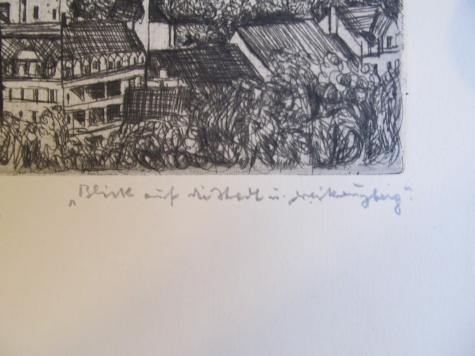 „Blick auf die Stadt u. Dreikreuzberg"